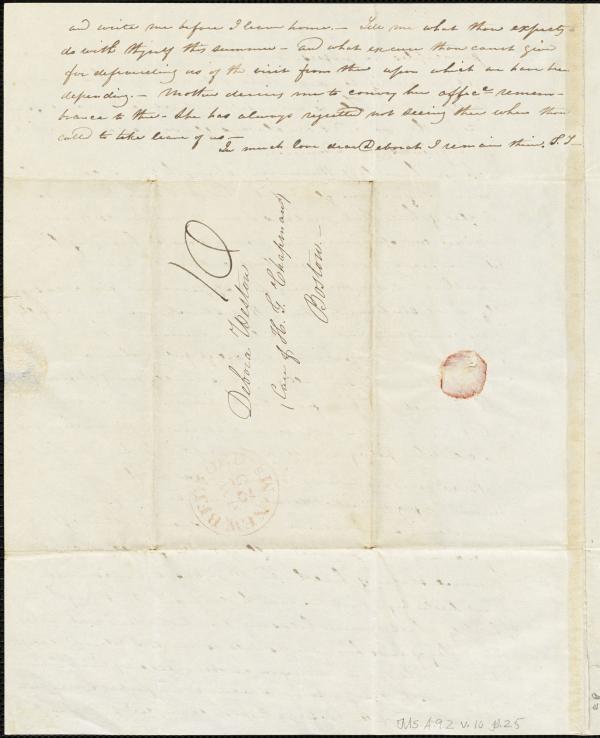 and write me before I leave home. — Tell me what thou expects to
do with thyself this summer — and what excuse thou canst give
for defrauding us of the visit from thee upon which we have been
depending. — Mother desires me to convey her affec.te remem-
brance to thee. She has always regretted not seeing thee when thou
called to take leave of us —
In much love dear Deborah I remain thine. S. T—
10
Debora Weston
(Care of H. G. Chapman)
Boston. —
NEW BEDFORD
MS A.9.2 v. 10 p. 25